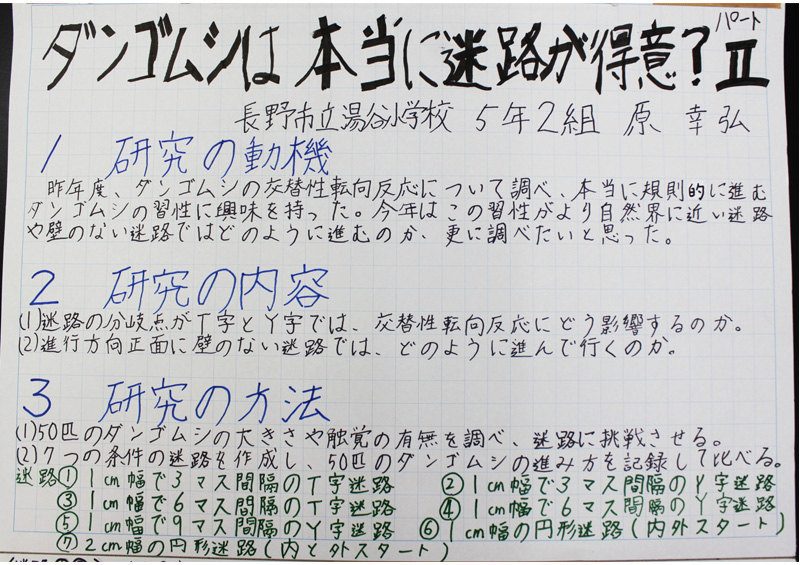 ダンゴムシは本当に迷路が得意?パートⅡ
長野市立湯谷小学校 5年2組 原 幸弘
1 研究の動機
昨年度、ダンゴムシの交替性転向反応について調べ、本当に規則的に進む
ダンゴムシの習性に興味を持った。今年はこの習性がより自然界に近い迷路
や壁のない迷路ではどのように進むのか、更に調べたいと思った。
2 研究の内容
(1)迷路の分岐点がT字とY字では、交替性転向反応にどう影響するのか。
(2)進行方向正面に壁のない迷路では、どのように進んで行くのか。
3 研究の方法
(1)50匹のダンゴムシの大きさや触覚の有無を調べ、迷路に挑戦させる。
(2)7つの条件の迷路を作成し、50匹のダンゴムシの進み方を記録して比べる。
迷路①1cm幅で3マス間隔のT字迷路 ②1cm幅で3マス間隔のY字迷路
③1cm幅で6マス間隔のT字迷路 ④1cm幅で6マス間隔のY字迷路
⑤1cm幅で9マス間隔のY字迷路 ⑥1cm幅の円形迷路(内外スタート)
⑦2cm幅の円形迷路(内と外スタート)